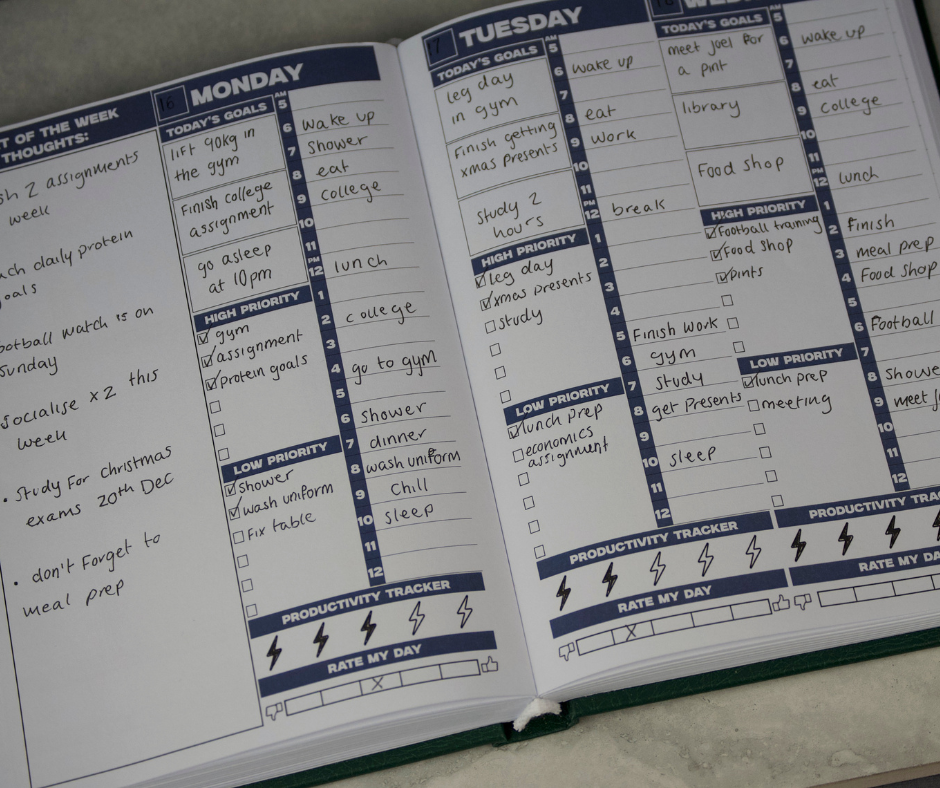 T OF THE WEEK
THOUGHTS:
sh 2 assignments
week
ach daily protein
oals
ootball watch is on
sunday
socialise x2 this
week
• study for christmas
exams 20th Dec
• don't forget to
meal prep
16 MONDAY
TODAY'S GOALS
lift 90kg in
the gym
Finish college
assignment
go asleep
at 10pm
HIGH PRIORITY
gym
assignment
protein goals
LOW PRIORITY
shower
wash uniform
Fix table
AM
5
6 wake up
7 shower
8 eat
9 college
10
11
PM
12 lunch
1
2 college
3
4 go to gym
5
6 shower
7 dinner
8 wash uniform
9 Chill
10 sleep
11
12
PRODUCTIVITY TRACKER
RATE MY DAY
X
17 TUESDAY
TODAY'S GOALS
leg day
in gym
Finish getting
xmas presents
study 2
hours
HIGH PRIORITY
leg day
xmas presents
study
LOW PRIORITY
lunch prep
economics
assignment
AM
5
6 wake up
7
8 eat
9 work
10
11
PM
12 break
1
2
3
4
5 Finish work
6 gym
7 study
8 get presents
9
10 sleep
11
12
PRODUCTIVITY TRACKER
RATE MY DAY
X
18 WED
TODAY'S GOALS
meet joel for
a pint
library
Food shop
HIGH PRIORITY
Football training
Food shop
pints
LOW PRIORITY
lunch prep
meeting
AM
5
6 wake up
7
8 eat
9 college
10
11
PM
12 lunch
1
2 finish
3 meal prep
4 Food shop
5
6 Football
7
8 showe
9 meet jo
10
11
12
PRODUCTIVITY TRA
RATE MY DAY